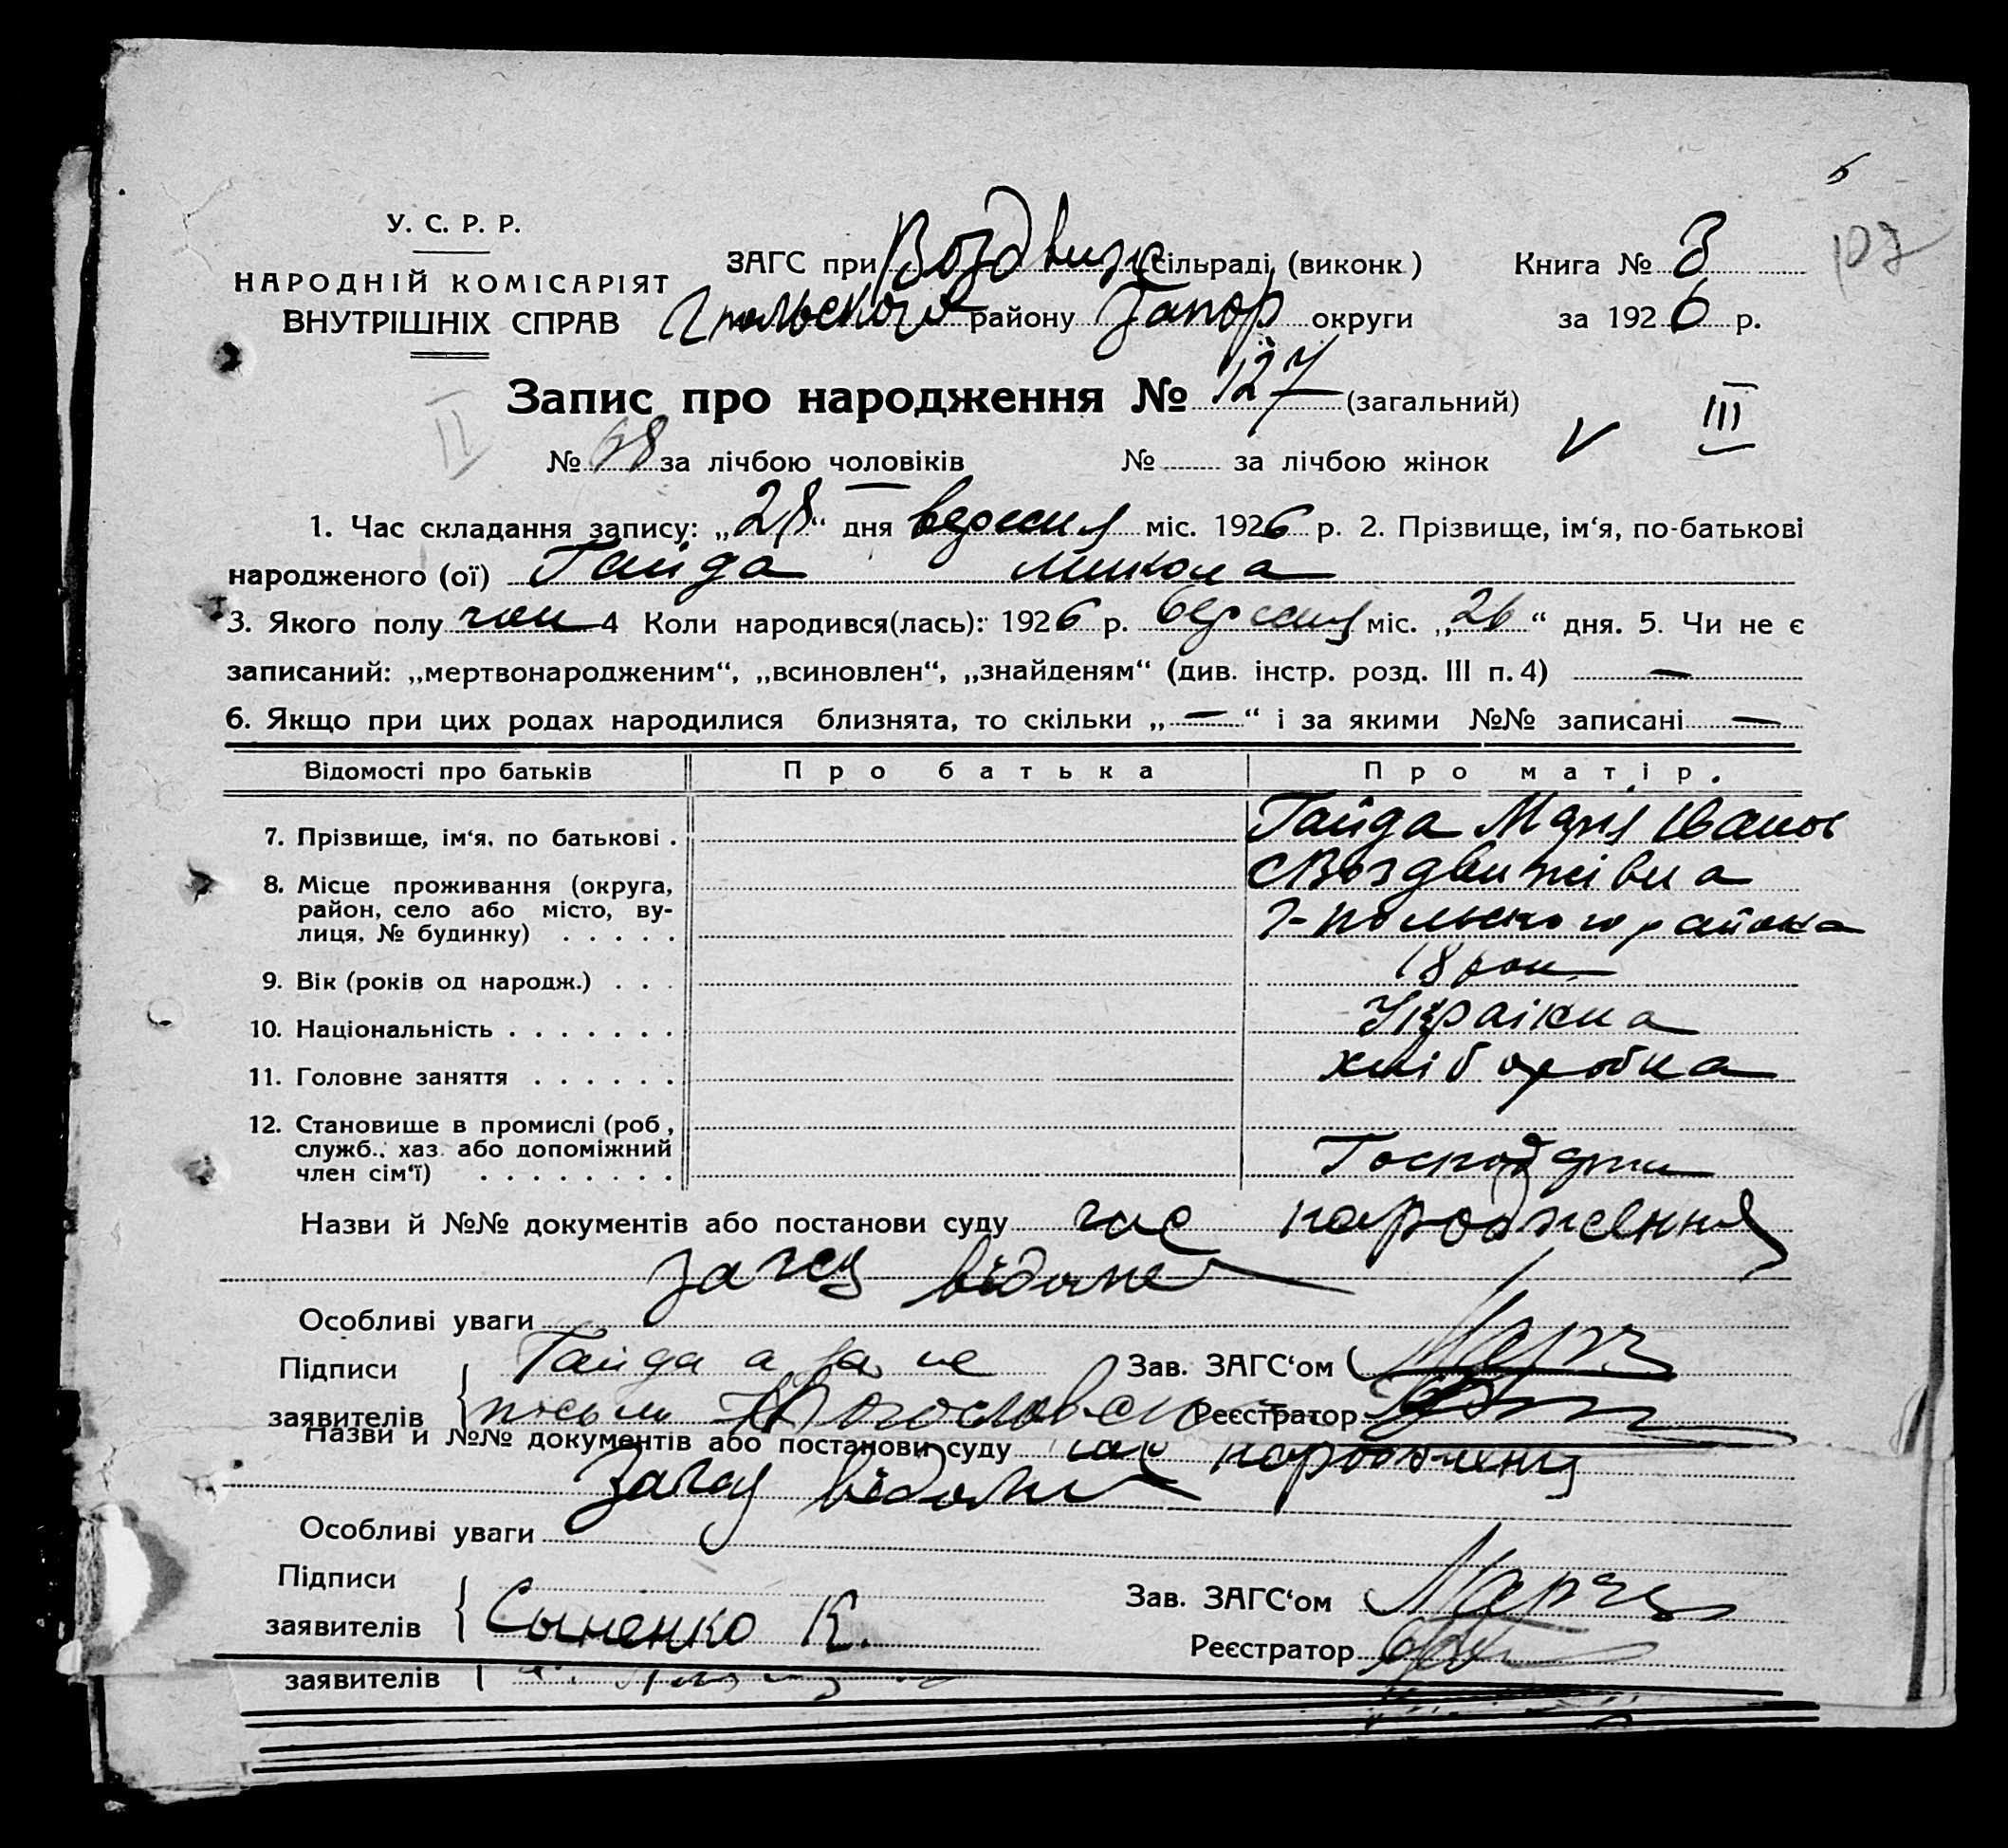 У. С. Р. Р.
НАРОДНІЙ КОМІСАРІЯТ
ВНУТРІШНІХ СПРАВ
ЗАГС при Воздвиж сільраді (виконк)
Книга № 3
107
Гпольского району Запор округи
за 1926 р.
Запис про народження № 127 (загальний)
II
III
№ 68 за лічбою чоловіків № за лічбою жінок V
1. Час складання запису: „28“ дня вересня міс. 1926 р. 2. Прізвище, ім‘я, по-батькові
народженого (ої) Гайда Микола
3. Якого полу чол 4 Коли народився(лась): 1926 р. вересня міс. „26“ дня. 5. Чи не є
записаний: „мертвонародженим“, „всиновлен“, „знайденям“ (див. інстр. розд. III п. 4) —
6. Якщо при цих родах народилися близнята, то скільки „—“ і за якими №№ записані —
Відомості про батьків Про батька Про матір.
7. Прізвище, ім‘я, по батькові . Гайда Марія Іванов
8. Місце проживання (округа, с Воздвижівка
район, село або місто, ву-
лиця, № будинку) . . . . . Г-польського района
9. Вік (років од народж.) . . . 18 рок
10. Національність . . . . . . . Українка
11. Головне заняття . . . . . . хліборобка
12. Становище в промислі (роб,
служб., хаз. або допоміжний
член сім‘ї) . . . . . . . .
Назви й №№ документів або постанови суду час народження
загсу відоме
Особливі уваги
Підписи Гайда а за не Зав. ЗАГС‘ом
заявителів письм Реєстратор
Назви й №№ документів або постанови суду час народження
Загсу відоме
Особливі уваги
Підписи Зав. ЗАГС‘ом
заявителів Сыненко К. Реєстратор
заявителів